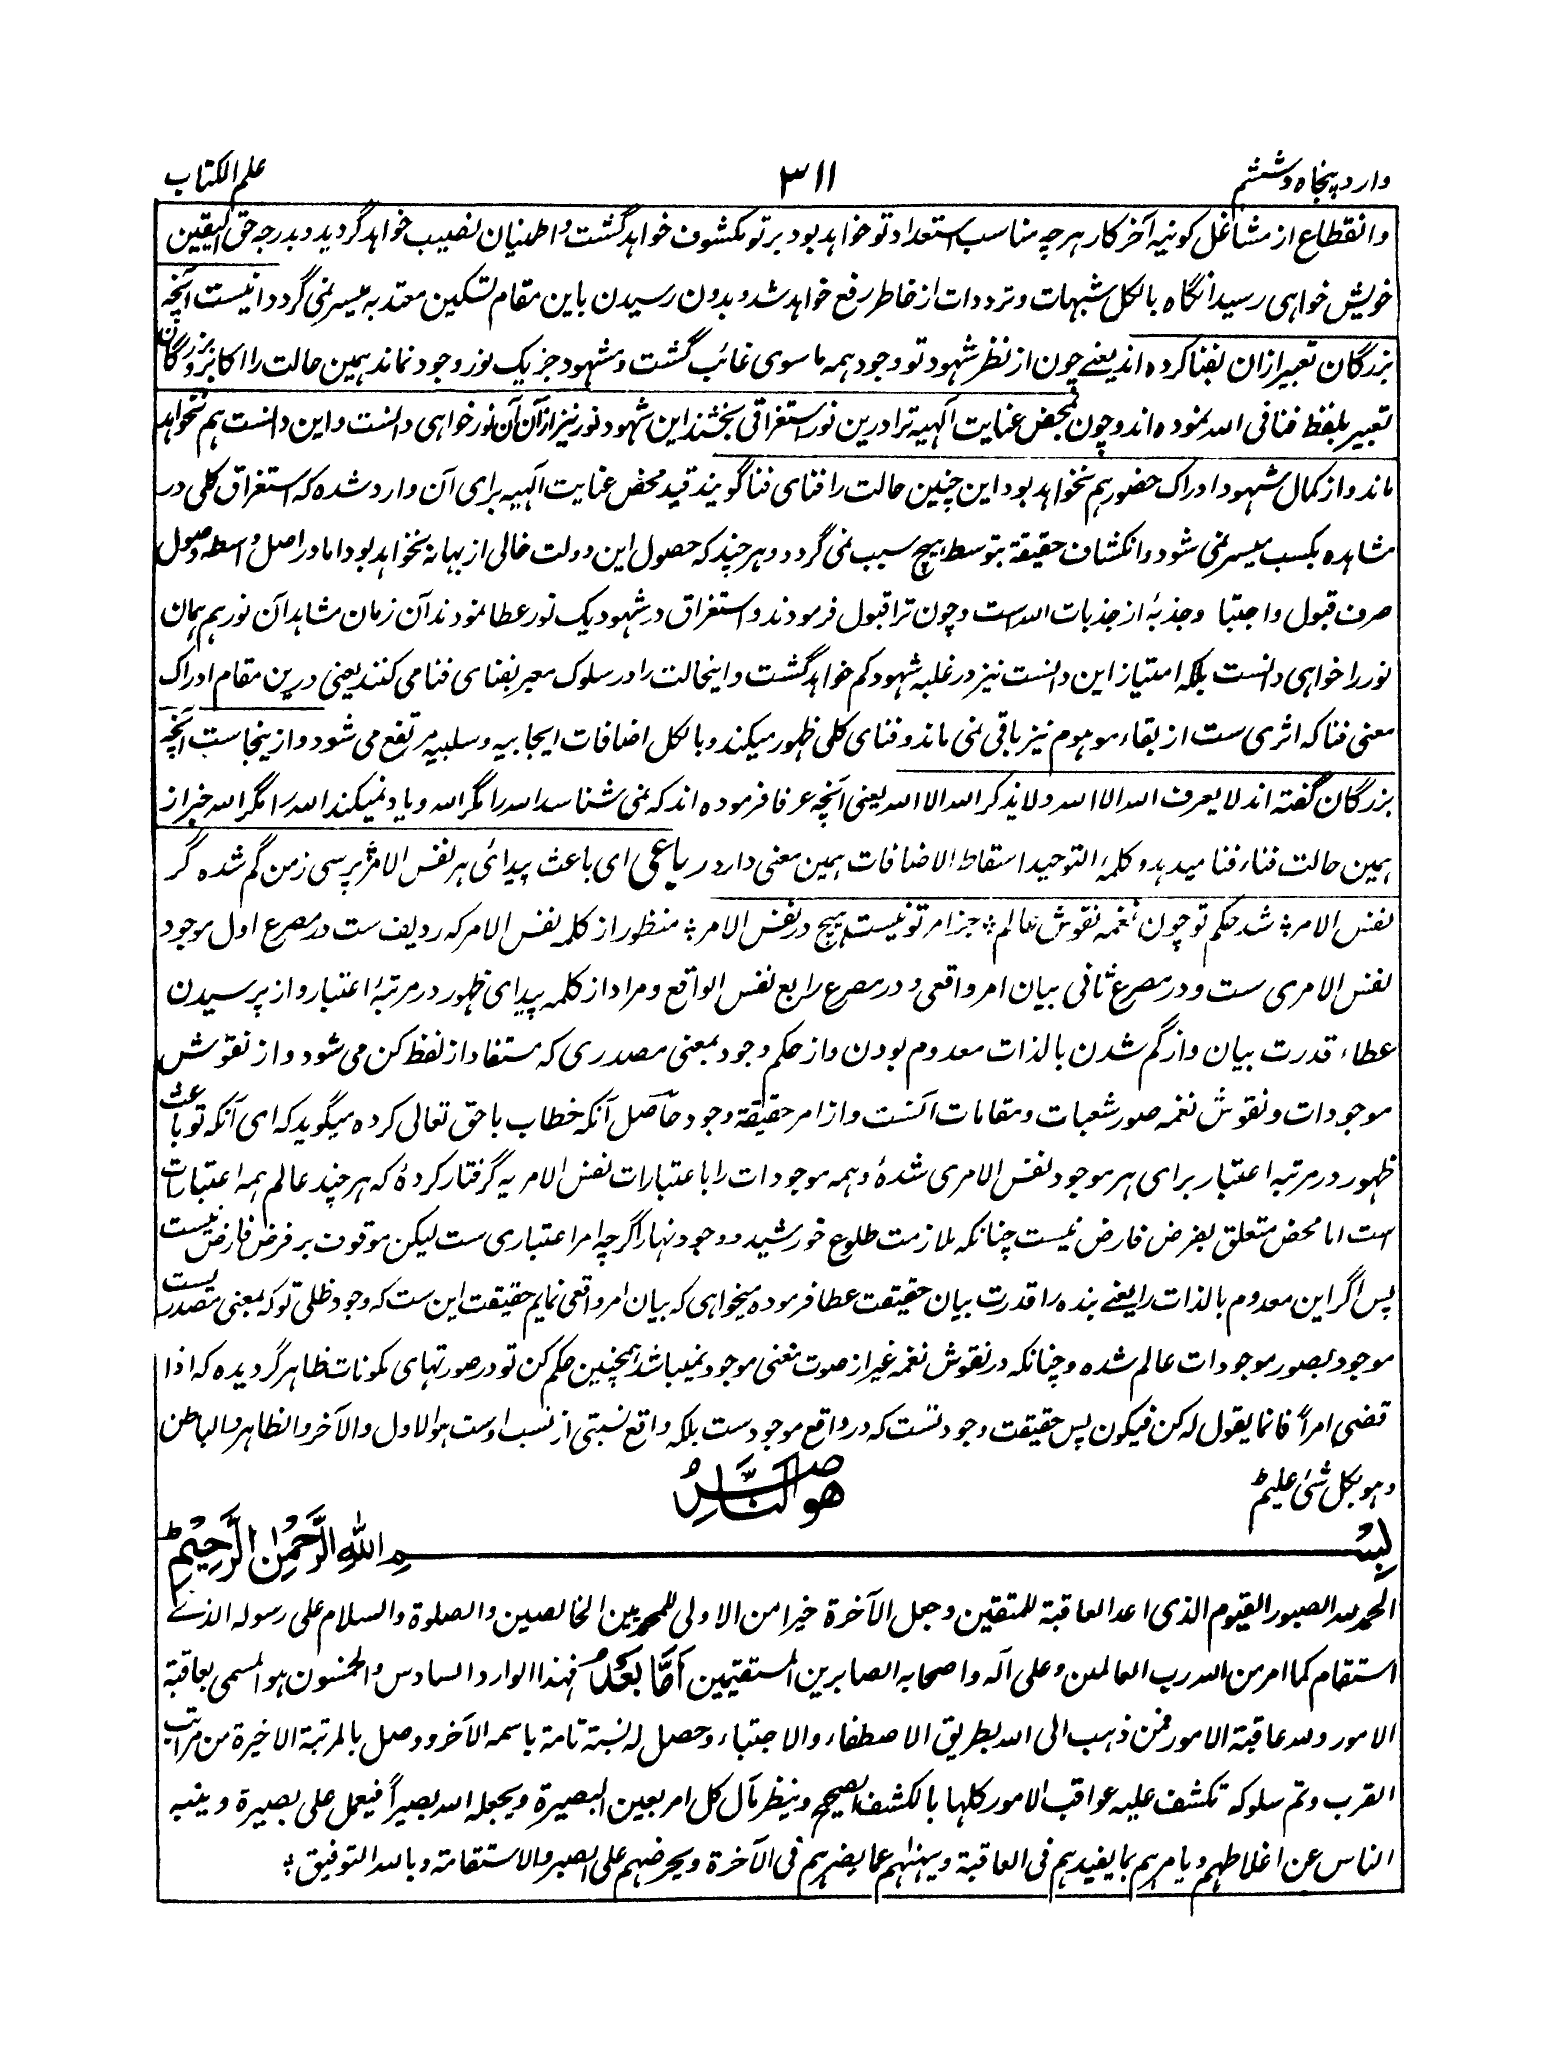 وارد پنجاه و ششم ۳۱۱ علم الکتاب
وانقطاع از مشاغل کونیه آخر کار هرچه مناسب استعداد تو خواهد بود بر تو مکشوف خواهد گشت و اطمنیان نصیب خواهد گردید و بدرجه حق الیقین
خویش خواهی رسید انگاه بالکل شبهات و ترددات از خاطر رفع خواهد شد و بدون رسیدن باین مقام تسکین معتد به میسر نمی گردد دانیست آنچه
بزرگان تعبیر ازان بفنا کرده اند یعنے چون از نظر شهود تو وجود همه ماسوی غائب گشت و مشهود جز یک نور وجود نماند همین حالت را اکابر بزرگان
تعبیر بلفظ فنا فی الله نموده اند و چون بمحض عنایت آلهیه ترا درین نور استغراقی بخشند این شهود نور نیز از آن آن نور خواهی دانست و این دانست هم نخواهد
ماند و از کمال شهود ادراک حضور هم نخواهد بود این چنین حالت را فنای فنا گویند قید محض عنایت آلهیه برای آن وارد شده که استغراق کلی در
مشاهده بکسب میسر نمی شود و انکشاف حقیقة بتوسط هیچ سبب نمی گردد و هر چند که حصول این دولت خالی از بهانه نخواهد بود اما در اصل واسطه وصول
صرف قبول و اجتبا وجذبۀ از جذبات الله ست و چون ترا قبول فرمودند و استغراق در شهود یک نور عطا نمودند آن زمان مشاهد آن نور هم همان
نور را خواهی دانست بلکه امتیاز این دانست نیز در غلبه شهود کم خواهد گشت و اینحالت را در سلوک معبر بفنای فنا می کنند یعنی درین مقام ادراک
معنی فنا که اثری ست از بقاء موهوم نیز باقی نمی ماند و فنای کلی ظهور میکند و بالکل اضافات ایجابیه و سلبیه مرتفع می شود و از ینجاست آنچه
بزرگان گفته اند لا یعرف الله الا الله و لا یذکر الله الا الله یعنی آنچه عرفا فرموده اند که نمی شناسد الله را مگر الله و یاد نمیکند الله را مگر الله خبر از
همین حالت فناء فنا میدهد و کلمۀ التوحید اسقاط الاضافات همین معنی دارد رباعی ای باعث پیدائی هر نفس الامر؞ پرسی زمن گم شده گر
نفس الامر؞ شد حکم تو چون نغمه نقوش عالم؞ جز امر تو نیست هیچ در نفس الامر؞ منظور از کلمه نفس الامر که ردیف ست در مصرع اول موجود
نفس الامری ست و در مصرع ثانی بیان امر واقعی و در مصرع رابع نفس الواقع و مراد از کلمه پیدای ظهور در مرتبۀ اعتبار و از پرسیدن
عطاء قدرت بیان و از گم شدن بالذات معدوم بودن و از حکم وجود بمعنی مصدری که مستفاد از لفظ کن می شود و از نقوش
موجودات و نقوش نغمه صور شعبات و مقامات آنست و از امر حقیقة وجود حاصل آنکه خطاب با حق تعالی کرده میگوید که ای آنکه تو باعث
ظهور در مرتبه اعتبار برای هر موجود نفس الامری شدۀ و همه موجودات را با عتبارات نفس الامریه گرفتار کردۀ که هر چند عالم همه اعتبارات
ست اما محض متعلق بفرض فارض نیست چنانکه ملازمت طلوع خورشید و وجود نهار اگرچه امر اعتباری ست لیکن موقوف بر فرض فارض نیست
پس اگر این معدوم بالذات را یعنے بنده را قدرت بیان حقیقت عطا فرموده میخواهی که بیان امر واقعی نمایم حقیقت این ست که وجود ظلی تو که بمعنی مصدریست
موجود بصور موجودات عالم شده و چنانکه در نقوش نغمه غیر از صوت مغنی موجود نمیباشد همچنین حکم کن تو در صورتهای مکونات ظاهر گردیده که اذا
قضی امراً فانما یقول له کن فیکون پس حقیقت وجود تست که در واقع موجودست بلکه واقع نسبتی از نسب اوست هو الاول والآخر والظاهر والباطن
وهو بکل شئ علیم
هو الناصر
بسم الله الرحمن الرحیم
الحمد لله الصبور القیوم الذی اعد العاقبة للمتقین وجعل الآخرة خیرا من الاولی للمحمدیین الخالصین والصلوة والسلام علی رسوله الذے
استقام کما امر من الله رب العالمین وعلی آله واصحابه الصابرین المستقیمین اما بعد فهذا الوارد السادس والخمسون هو المسمی بعاقبة
الامور ولله عاقبة الامور فمن ذهب الی الله بطریق الاصطفاء والاجتباء وحصل له نسبة تامة باسمه الآخر ووصل بالمرتبة الاخیرة من مراتب
القرب وتم سلوکه تکشف علیه عواقب الامور کلها بالکشف الصحیح وینظر مآل کل امر بعین البصیرة ویجعله الله بصیراً فیعمل علی بصیرة وینبه
الناس عن اغلاطهم ویامرهم بما یفیدهم فی العاقبة وینهٰهم عما یضرهم فی الآخرة ویحرضهم علی الصبر والاستقامة وبالله التوفیق؞